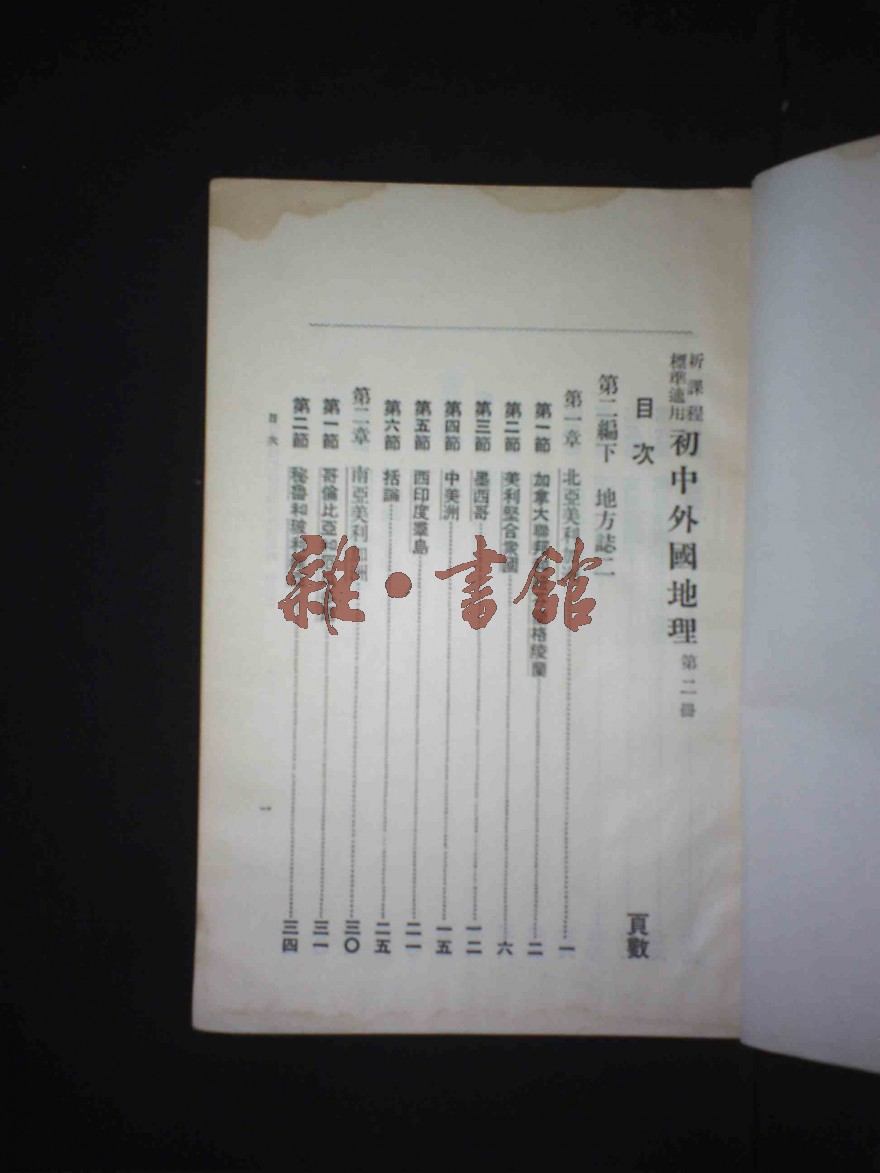 新課程標準適用 初中外國地理 第二冊
目次 頁數
第二編下 地方誌二
第一章 北亞美利加 一
第一節 加拿大聯邦 格陵蘭 二
第二節 美利堅合衆國 六
第三節 墨西哥 一二
第四節 中美洲 一五
第五節 西印度羣島 二一
第六節 括論 二五
第二章 南亞美利加洲 三〇
第一節 哥倫比亞和 三一
第二節 秘魯和玻 三四
目次 一
雜·書館